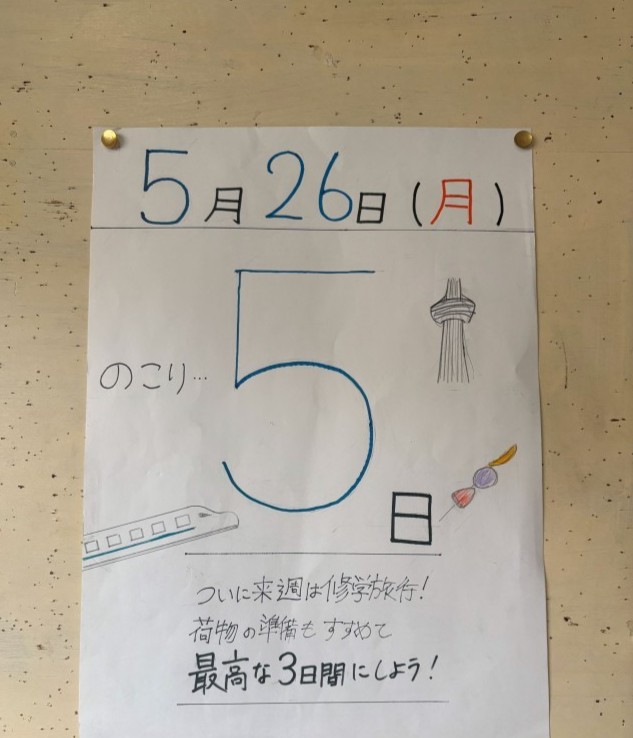 5月26日(月)
のこり…
5日
ついに来週は修学旅行!
荷物の準備もすすめて
最高な3日間にしよう!